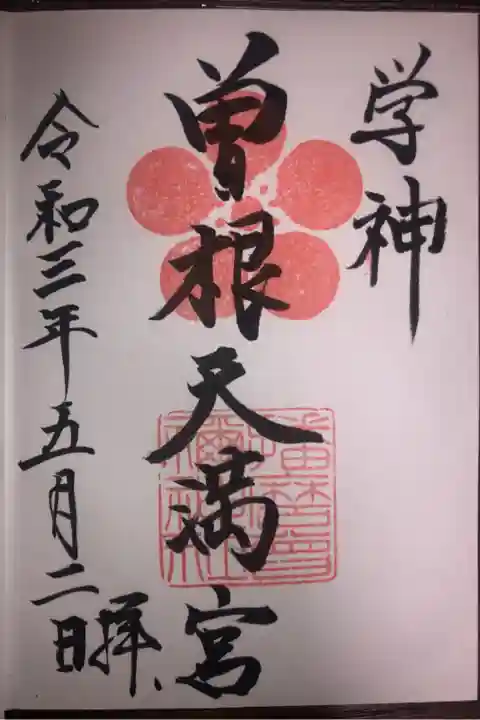 学神
曽根天満宮
令和三年五月二日
拝